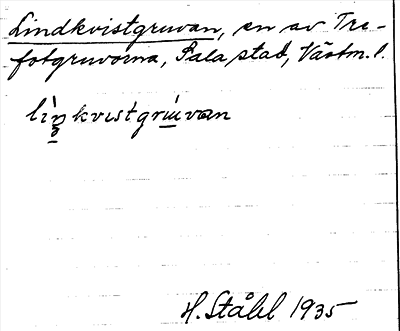 Lindkvistgruvan, en av Tre-
fotgruvorna, Sala stad, Västm. l.
lìŋkvistgrúvan
H. Ståhl 1935